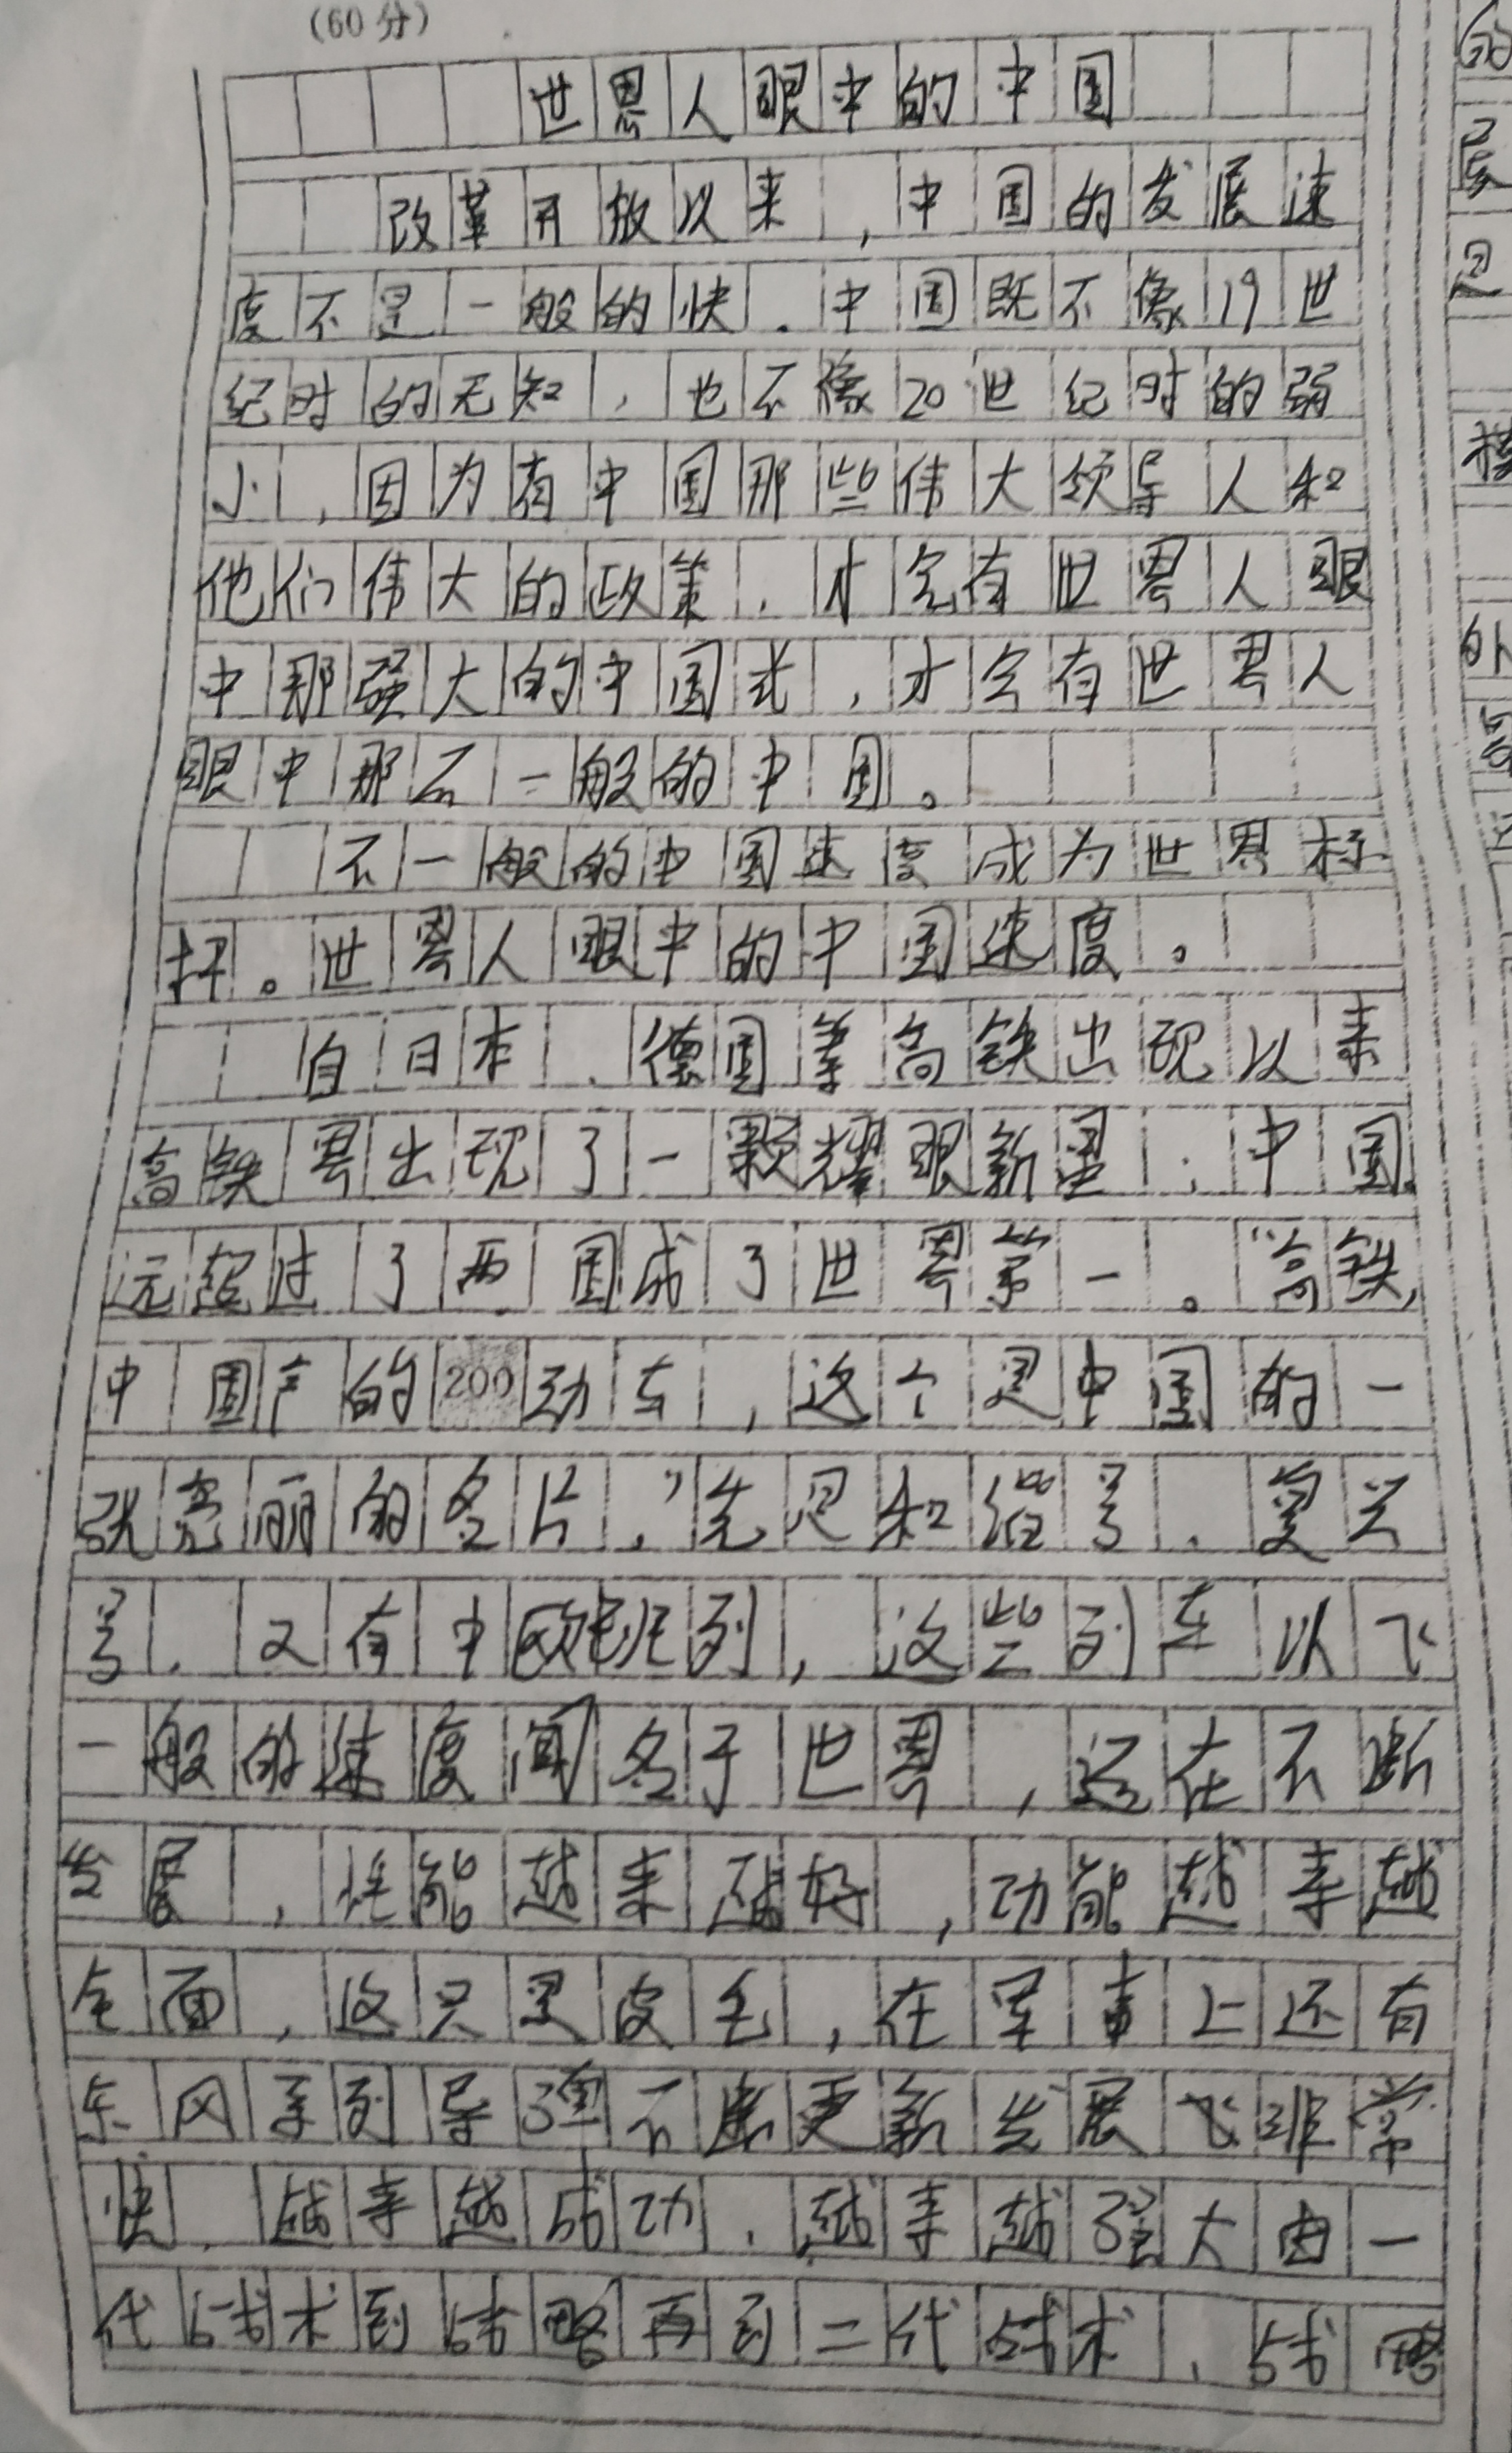 (60分)
世界人眼中的中国
改革开放以来,中国的发展速
度不是一般的快.中国既不像19世
纪时的无知,也不像20世纪时的弱
小,因为有中国那些伟大领导人和
他们伟大的政策,才会有世界人眼
中那强大的中国式,才会有世界人
眼中那不一般的中国。
不一般的中国速度成为世界标
杆。世界人眼中的中国速度。
自日本、德国等高铁出现以来
高铁界出现了一颗耀眼新星:中国,
远超过了两国成了世界第一。"高铁,
中国产的200动车,这个是中国的一
张亮丽的名片,"先是和谐号、复兴
号,又有中欧班列,这些列车以飞
一般的速度闻名于世界,还在不断
发展,性能越来越好,功能越来越
全面,这只是皮毛,在军事上还有
东风系列导弹不断更新发展飞非常
快,越来越成功,越来越强大由一
代战术到战略再到二代战术,战略
的
展
是
外